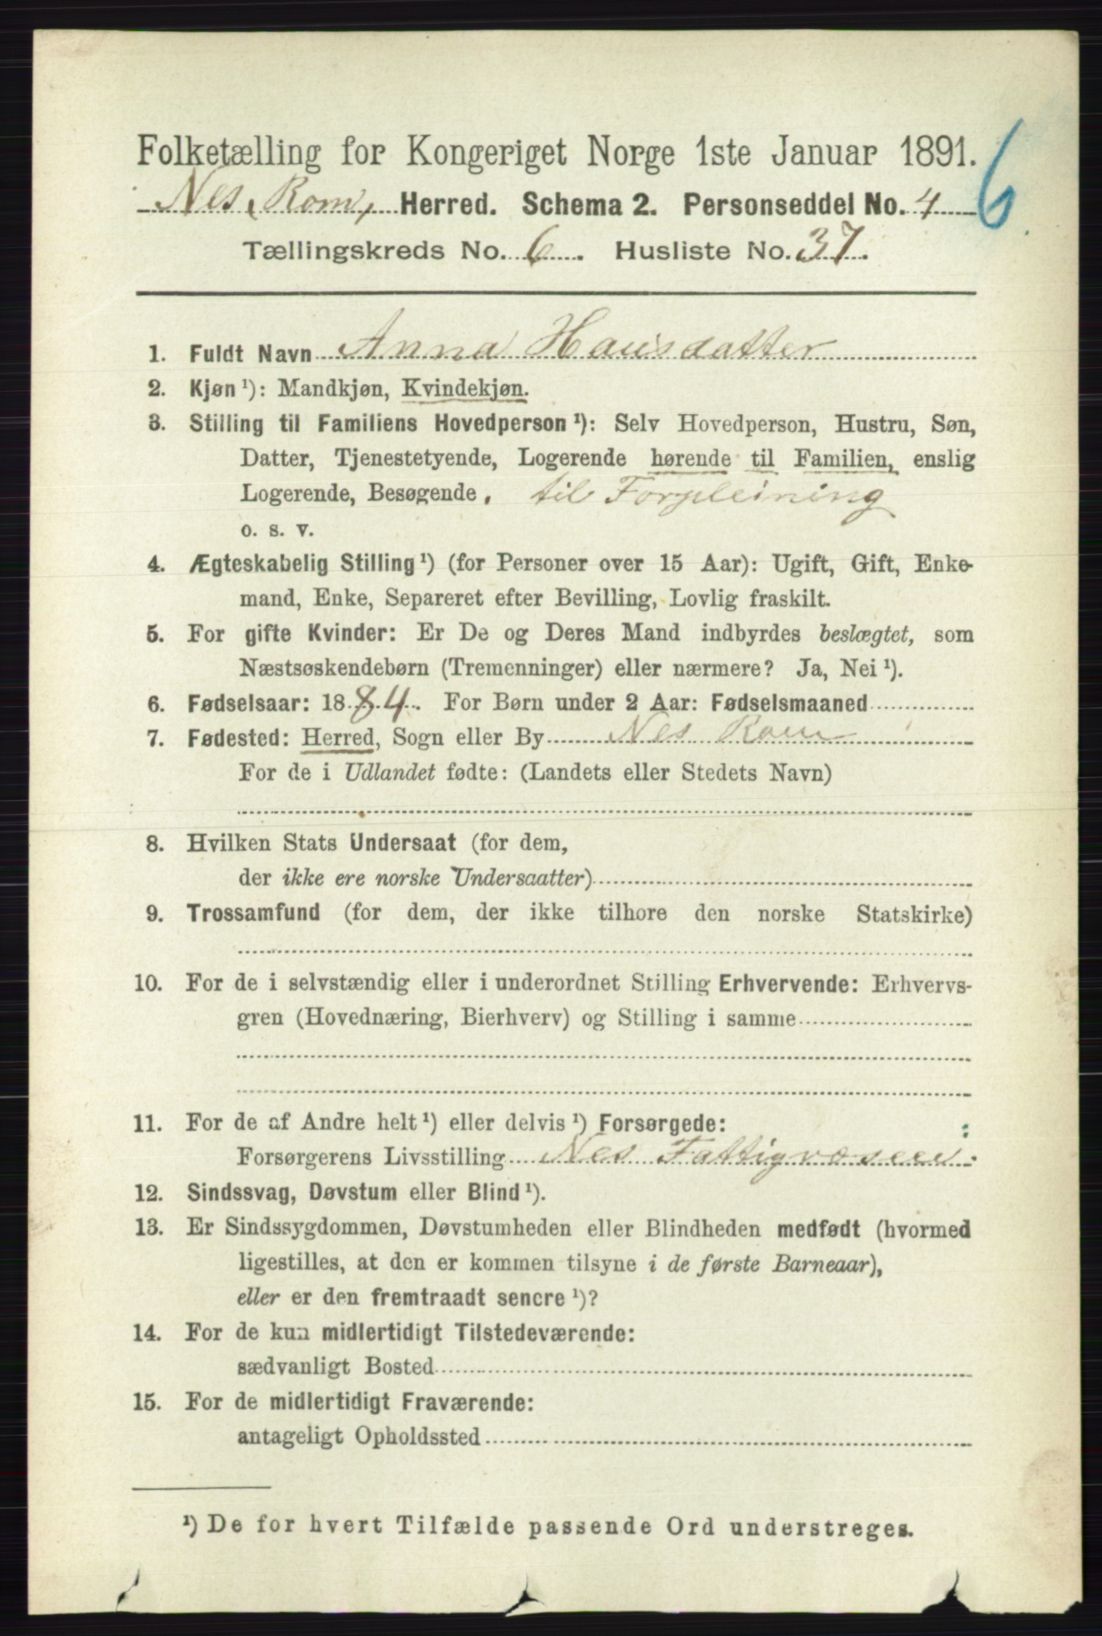 Folketælling for Kongeriget Norge 1ste Januar 1891.
6
Nes, Rom, Herred. Schema 2. Personseddel No. 4
Tællingskreds No. 6. Husliste No. 37.
1. Fuldt Navn Anna Hansdatter
2. Kjøn ¹): Mandkjøn, Kvindekjøn.
3. Stilling til Familiens Hovedperson ¹): Selv Hovedperson, Hustru, Søn,
Datter, Tjenestetyende, Logerende hørende til Familien, enslig
Logerende, Besøgende. til Forpleining
o. s. v.
4. Ægteskabelig Stilling ¹) (for Personer over 15 Aar): Ugift, Gift, Enke-
mand, Enke, Separeret efter Bevilling, Lovlig fraskilt.
5. For gifte Kvinder: Er De og Deres Mand indbyrdes beslægtet, som
Næstsøskendebørn (Tremenninger) eller nærmere? Ja, Nei ¹).
6. Fødselsaar: 1884. For Børn under 2 Aar: Fødselsmaaned
7. Fødested: Herred, Sogn eller By Nes Rom
For de i Udlandet fødte: (Landets eller Stedets Navn)
8. Hvilken Stats Undersaat (for dem,
der ikke ere norske Undersaatter)
9. Trossamfund (for dem, der ikke tilhore den norske Statskirke)
10. For de i selvstændig eller i underordnet Stilling Erhvervende: Erhvervs-
gren (Hovednæring, Bierhverv) og Stilling i samme
11. For de af Andre helt ¹) eller delvis ¹) Forsørgede:
Forsørgerens Livsstilling Nes Fattigvæsen.
12. Sindssvag, Døvstum eller Blind ¹).
13. Er Sindssygdommen, Døvstumheden eller Blindheden medfødt (hvormed
ligestilles, at den er kommen tilsyne i de første Barneaar),
eller er den fremtraadt senere ¹)?
14. For de kun midlertidigt Tilstedeværende:
sædvanligt Bosted
15. For de midlertidigt Fraværende:
antageligt Opholdssted
¹) De for hvert Tilfælde passende Ord understreges.